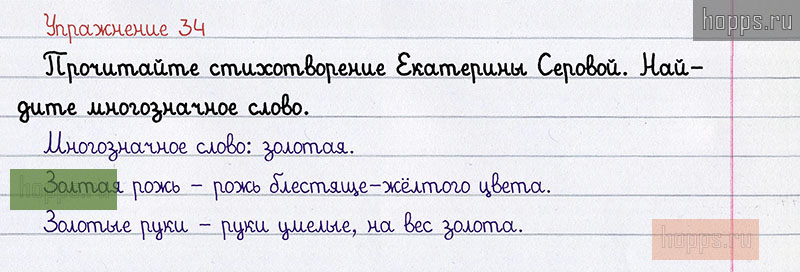 hopps.ru
Упражнение 34
Прочитайте стихотворение Екатерины Серовой. Най-
дите многозначное слово.
Многозначное слово: золотая.
Золтая рожь - рожь блестяще-жёлтого цвета.
hopps.ru
Золотые руки - руки умелые, на вес золота.
hopps.ru